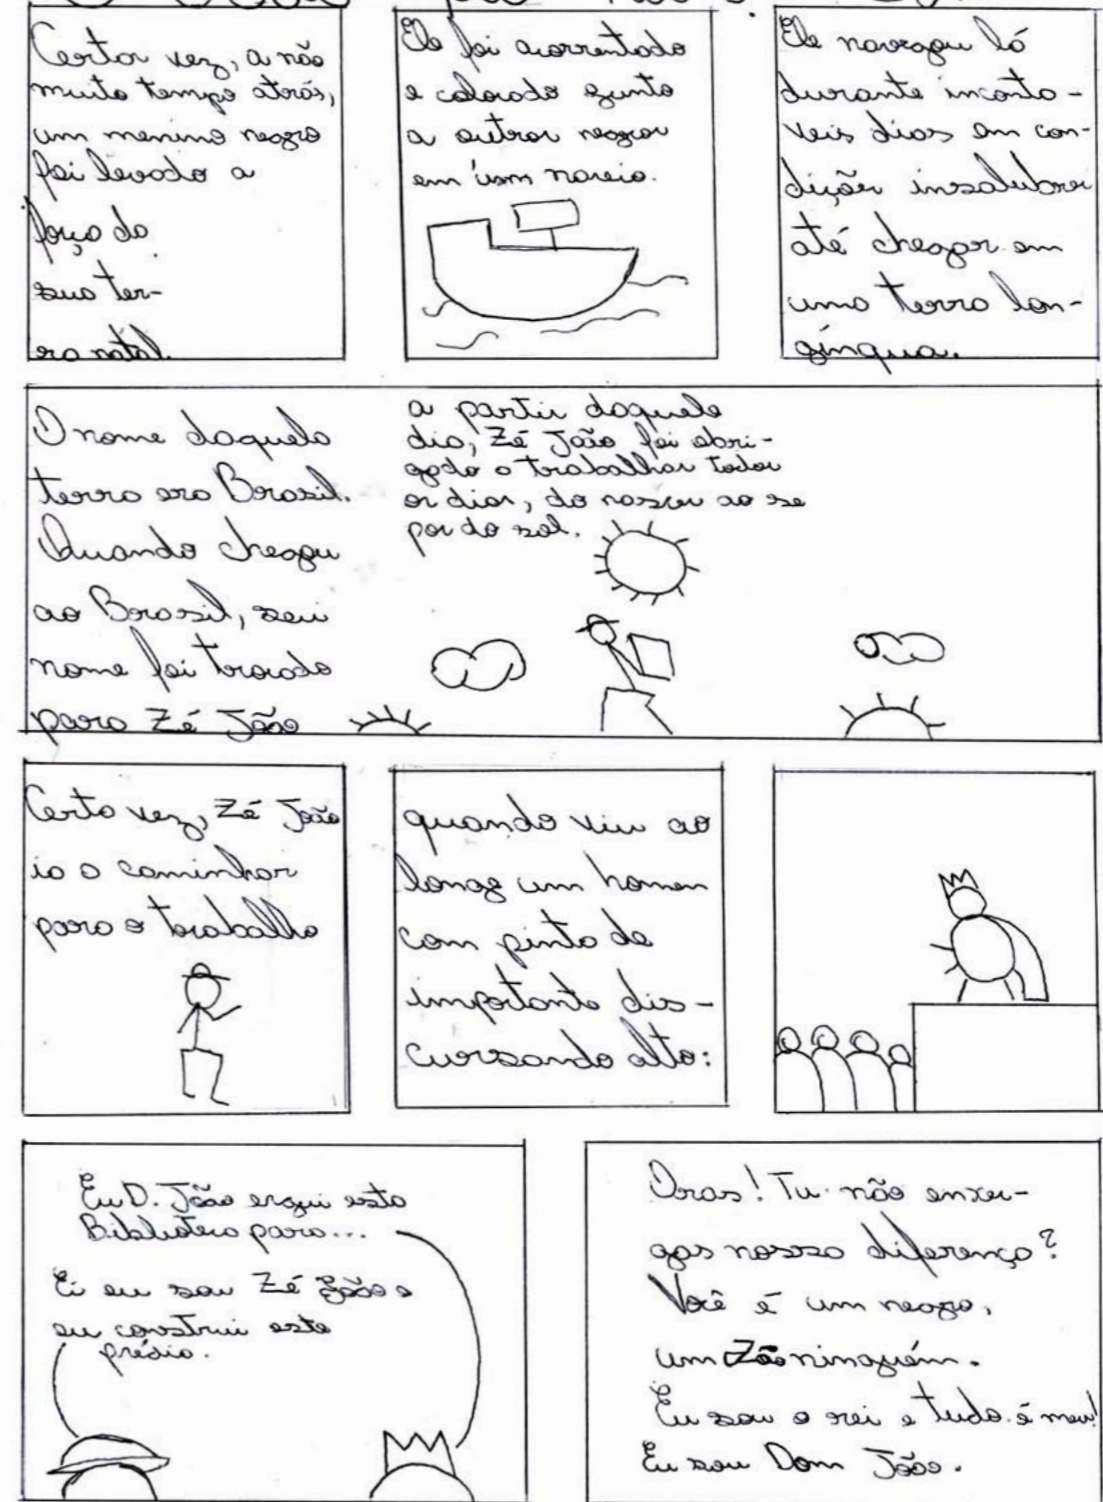 Certor vez, a não
muito tempo atrás,
um menino negro
foi levado a
força da
sua ter-
ra natal.
Ele foi acorrentado
e colocado gunto
a outros negros
em um navio.
Ele navegou lá
durante incontá-
veis dias em con-
dições insalubres
até chegar em
uma terra lon-
gínqua.
O nome daquela
terra era Brasil.
Quando chegou
ao Brasil, seu
nome foi trocado
para Zé João
a partir daquele
dia, Zé João foi obri-
gado a trabalhar todos
os dias, do nascer ao se
por do sol.
Certa vez, Zé João
ia a caminhar
para o trabalho
quando viu ao
longe um homem
com pinta de
importante dis-
cursando alto:
Eu D. João ergui esta
Biblioteca para...
Ei eu sou Zé João e
eu construi este
prédio.
Oras! Tu não enxer-
gas nossa diferença?
Você é um negro,
um Zé ninguém.
Eu sou o rei e tudo é meu!
Eu sou Dom João.